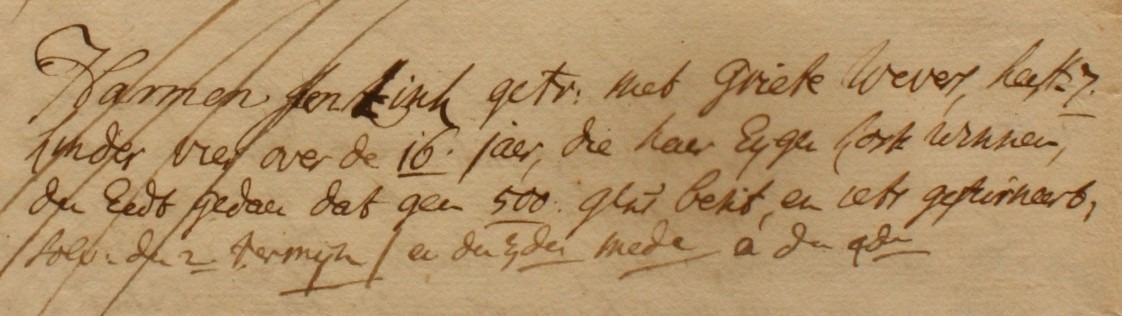 Harmen Jentink getr: met Griete Wevers, heeft 7.
kinder vier over de 16. jaer, die haer Eygen kost winnen,
den Eedt gedaen dat geen 500. glns besit, en iets gefurneert,
solv: den 2 termijn / en den 3den mede a den 4den